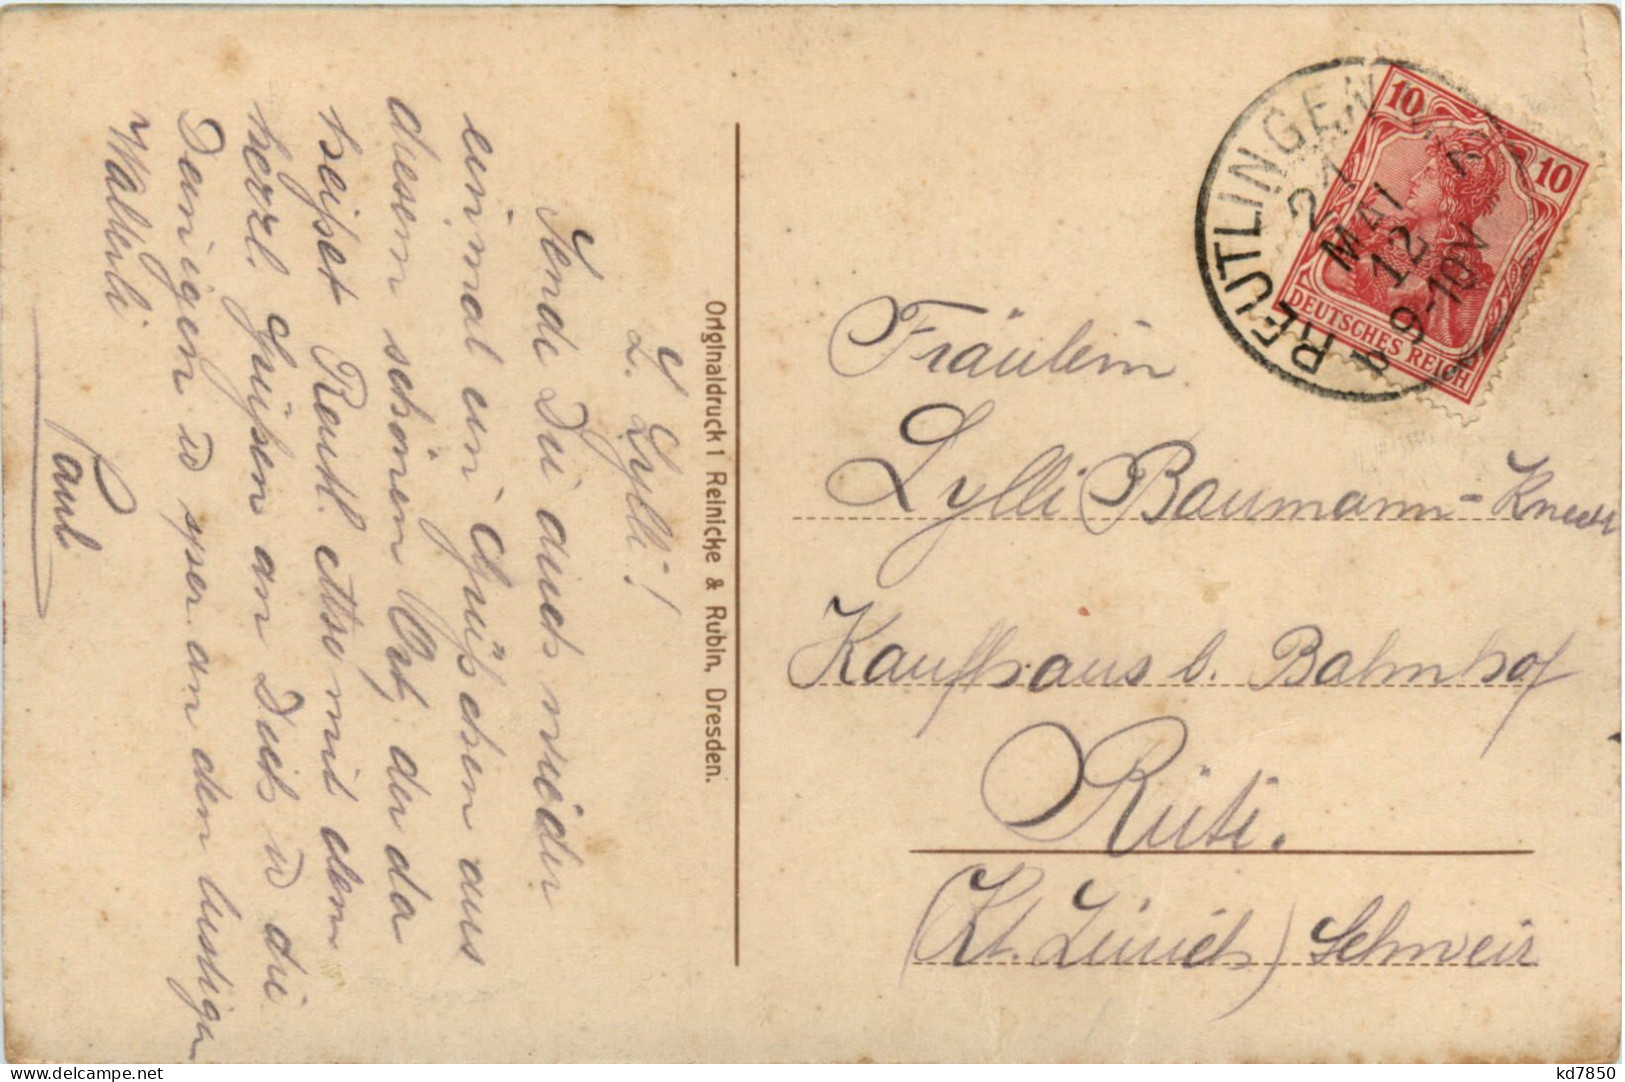 L. Lylli!
Sende Dir auch wieder
einmal ein Grüßchen aus
diesem schönen Ort, der da
heißet Reutl. Also mit dem
herzl. Grüßen an Dich u die
Deinigen u sper. an den lustigen
Walterli
Paul
Originaldruck 1 Reinicke & Rubin, Dresden.
REUTLINGEN
21
MAI
12
9-10N
10
10
DEUTSCHES REICH
Fräulein
Lylli Baumann-Knecht
Kaufhaus b. Bahnhof
Rüti.
(Kt. Zürich) Schweiz
kd7850